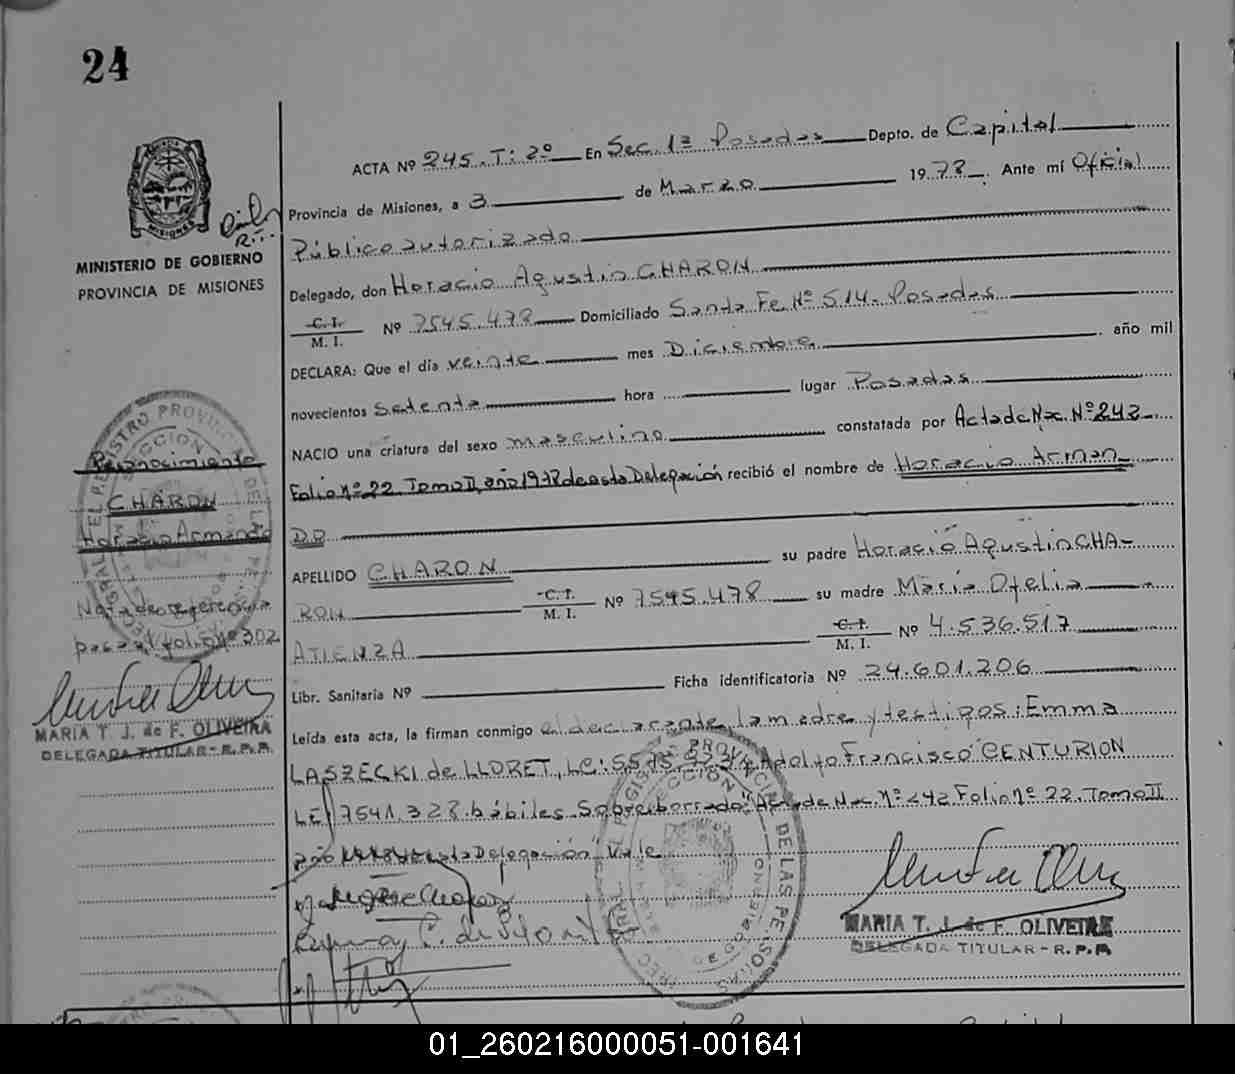 24
ACTA Nº 245. T: 2º En Sec. 1ª Posadas Depto. de Capital
Provincia de Misiones, a 3 de Marzo 1978. Ante mí Oficial
Público autorizado
MINISTERIO DE GOBIERNO
PROVINCIA DE MISIONES
Delegado, don Horacio Agustin CHARON
C. I.
M. I. Nº 7545.478 Domiciliado Santa Fe Nº 514- Posadas
DECLARA: Que el día veinte mes Diciembre, año mil
novecientos setenta hora lugar Posadas
NACIO una criatura del sexo masculino constatada por Acta de Nac. Nº 242
Folio nº 22 Tomo II, año 1978 de esta Delegación recibió el nombre de Horacio Arman
DO
APELLIDO CHARON su padre Horacio Agustin CHA-
RON C. I.
M. I. Nº 7545.478 su madre María Ofelia
ATIENZA C. I.
M. I. Nº 4.536.517
Libr. Sanitaria Nº Ficha identificatoria Nº 24.601.206
Leída esta acta, la firman conmigo el declarante, la madre y testigos: Emma
LASZECKI de LLORET, LC: Adolfo Francisco CENTURION
LE: 7541.328. hábiles. Sobreborrado: "Acta de Nac. Nº 242 Folio nº 22. Tomo II
año esta Delegación" Vale
Reconocimiento
CHARON
Horacio Armando
Nota de referencia
pasa al folio nº 302
MARIA T. J. de F. OLIVEIRA
DELEGADA TITULAR - R.P.P.
MARIA T. J. de F. OLIVEIRA
DELEGADA TITULAR - R.P.P.
01_260216000051-001641